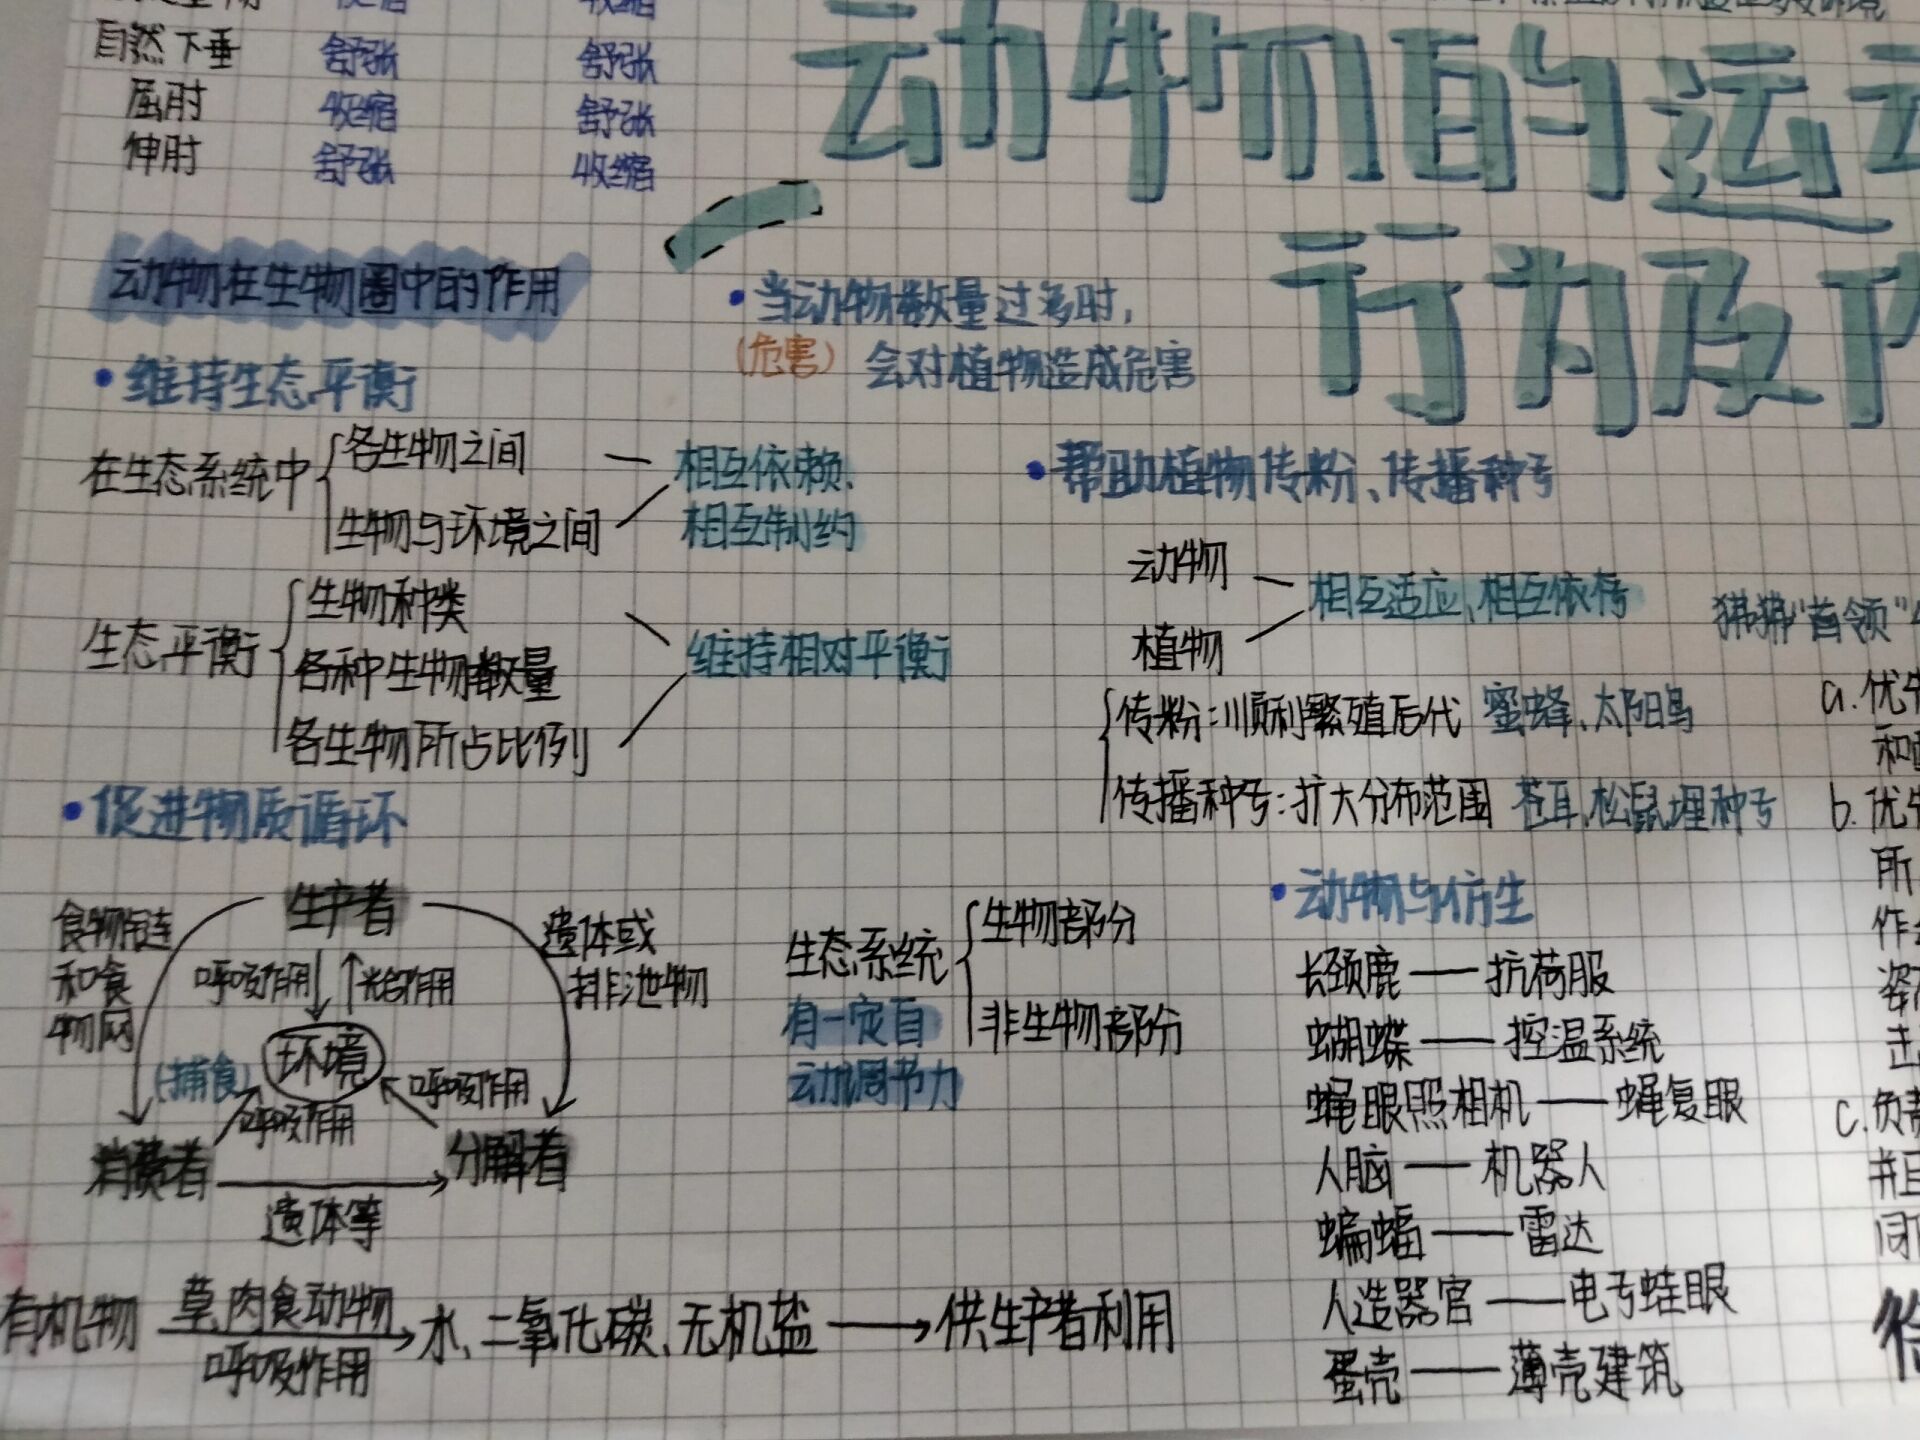 自然下垂 舒张 舒张
屈肘 收缩 舒张
伸肘 舒张 收缩
动物的运
行为及
动物在生物圈中的作用
•当动物数量过多时，
(危害) 会对植物造成危害
•维持生态平衡
在生态系统中
各生物之间
生物与环境之间
相互依赖、
相互制约
生态平衡
生物种类
各种生物数量
各生物所占比例
维持相对平衡
•促进物质循环
生产者
食物链
和食
物网
呼吸作用
光合作用
遗体或
排泄物
环境
(捕食)
呼吸作用
呼吸作用
消费者
分解者
遗体等
生态系统
生物部分
非生物部分
有一定自
动调节力
有机物 草,肉食动物 水、二氧化碳、无机盐 → 供生产者利用
呼吸作用
•帮助植物传粉、传播种子
动物
植物
相互适应、相互依存
传粉:顺利繁殖后代 蜜蜂、太阳鸟
传播种子:扩大分布范围 苍耳,松鼠埋种子
•动物与仿生
长颈鹿——抗荷服
蝴蝶——控温系统
蝇眼照相机——蝇复眼
人脑——机器人
蝙蝠——雷达
人造器官——电子蛙眼
蛋壳——薄壳建筑
狒狒“首领”
a.优
和
b.优
所
作
姿
击
c.负
并且